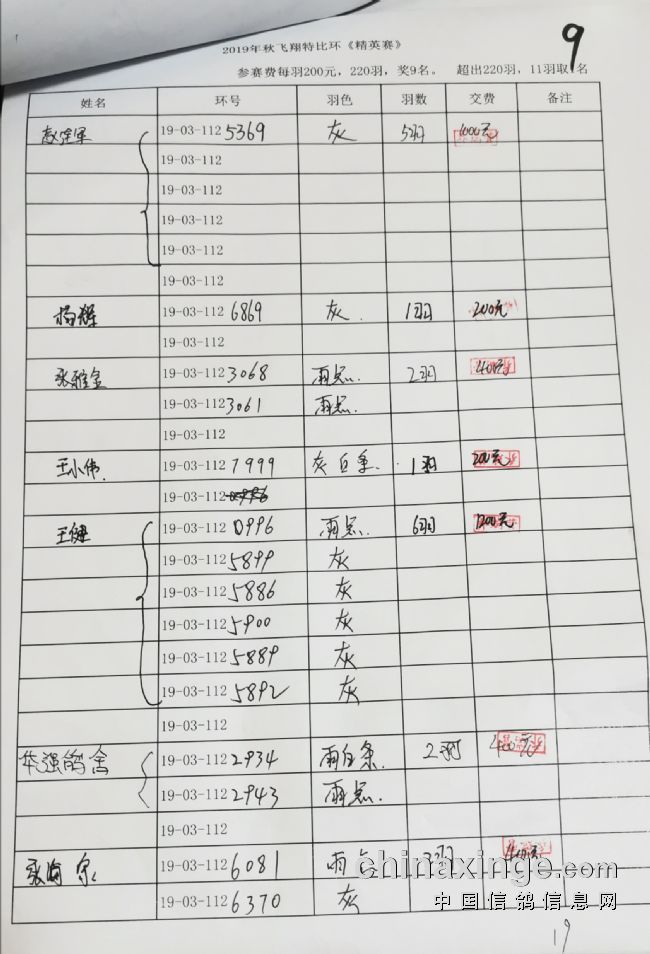 9
2019年秋飞翔特比环《精英赛》
参赛费每羽200元，220羽，奖9名。 超出220羽，11羽取1名
姓名 环号 羽色 羽数 交费 备注
19-03-112 5369 灰 5羽 1000元
19-03-112
19-03-112
19-03-112
19-03-112
19-03-112
杨辉 19-03-112 6869 灰. 1羽 200元
19-03-112
张雅金 19-03-112 3068 雨点. 2羽 400元
19-03-112 3061 雨点.
19-03-112
王小伟. 19-03-112 7999 灰白条. 1羽 200元
19-03-112
王健 19-03-112 0996 雨点. 6羽 1200元
19-03-112 5899 灰
19-03-112 5886 灰
19-03-112 5900 灰
19-03-112 5889 灰
19-03-112 5892 灰
19-03-112
华强鸽舍 19-03-112 2934 雨白条. 2羽 400元
19-03-112 2943 雨点.
19-03-112
张海 19-03-112 6081 雨点
19-03-112 6370 灰
chinaxinge.com
中国信鸽信息网
19